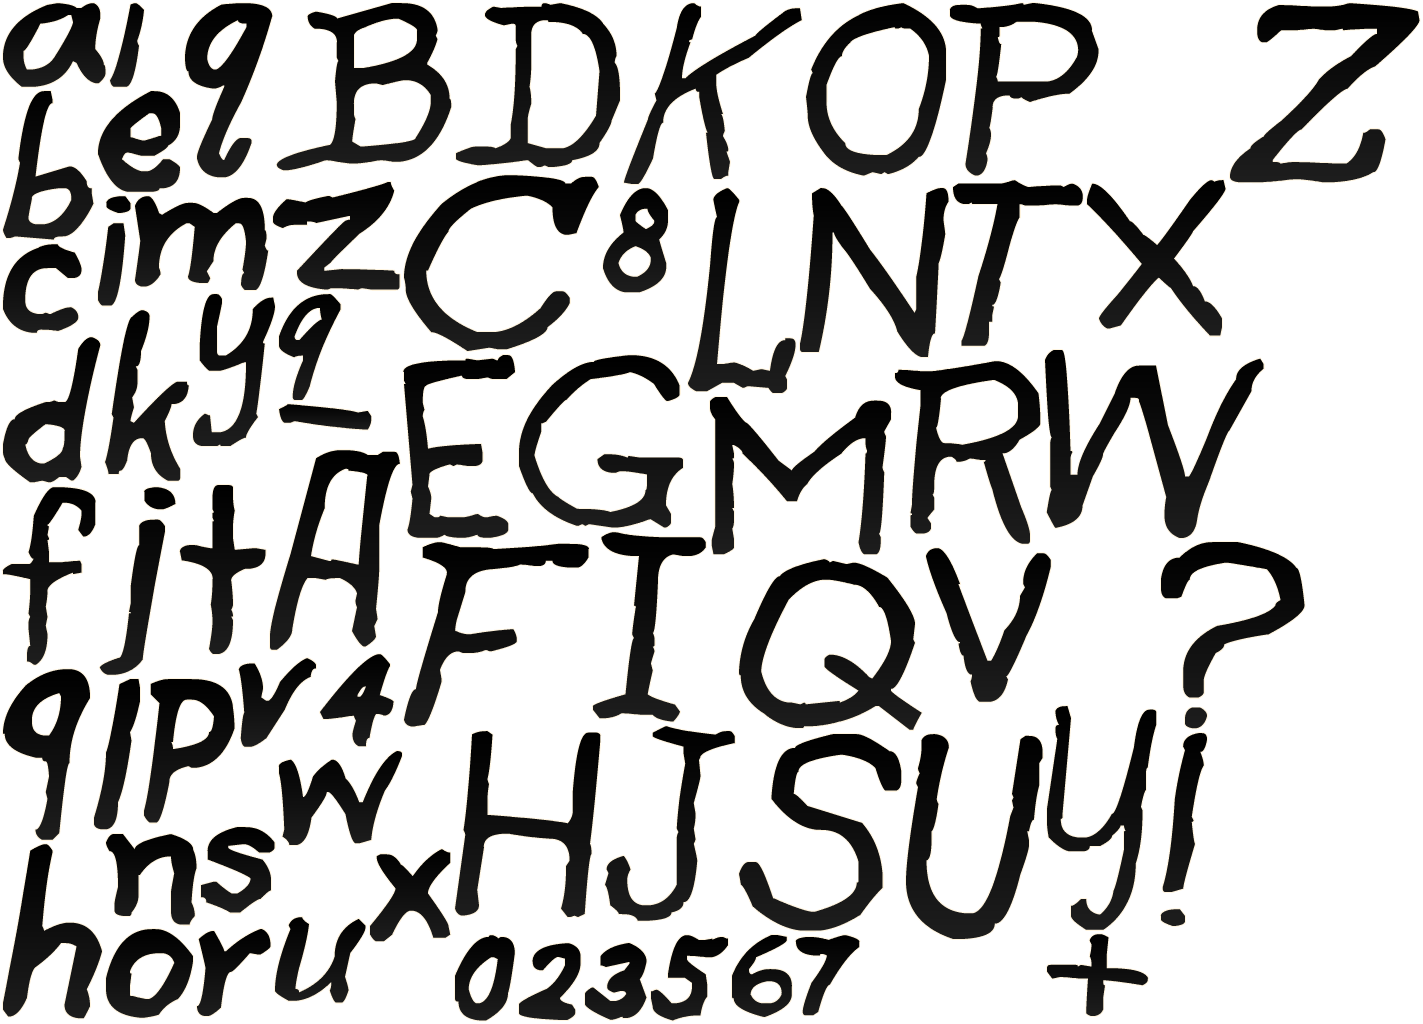 a l q B D K O P Z
b e
c i m z C 8 L N T X
d k y 9 _ E G M R W
f j t A F I Q V ?
g l p v 4 H J S U Y !
n s w x
h o r u 0 2 3 5 6 7 +